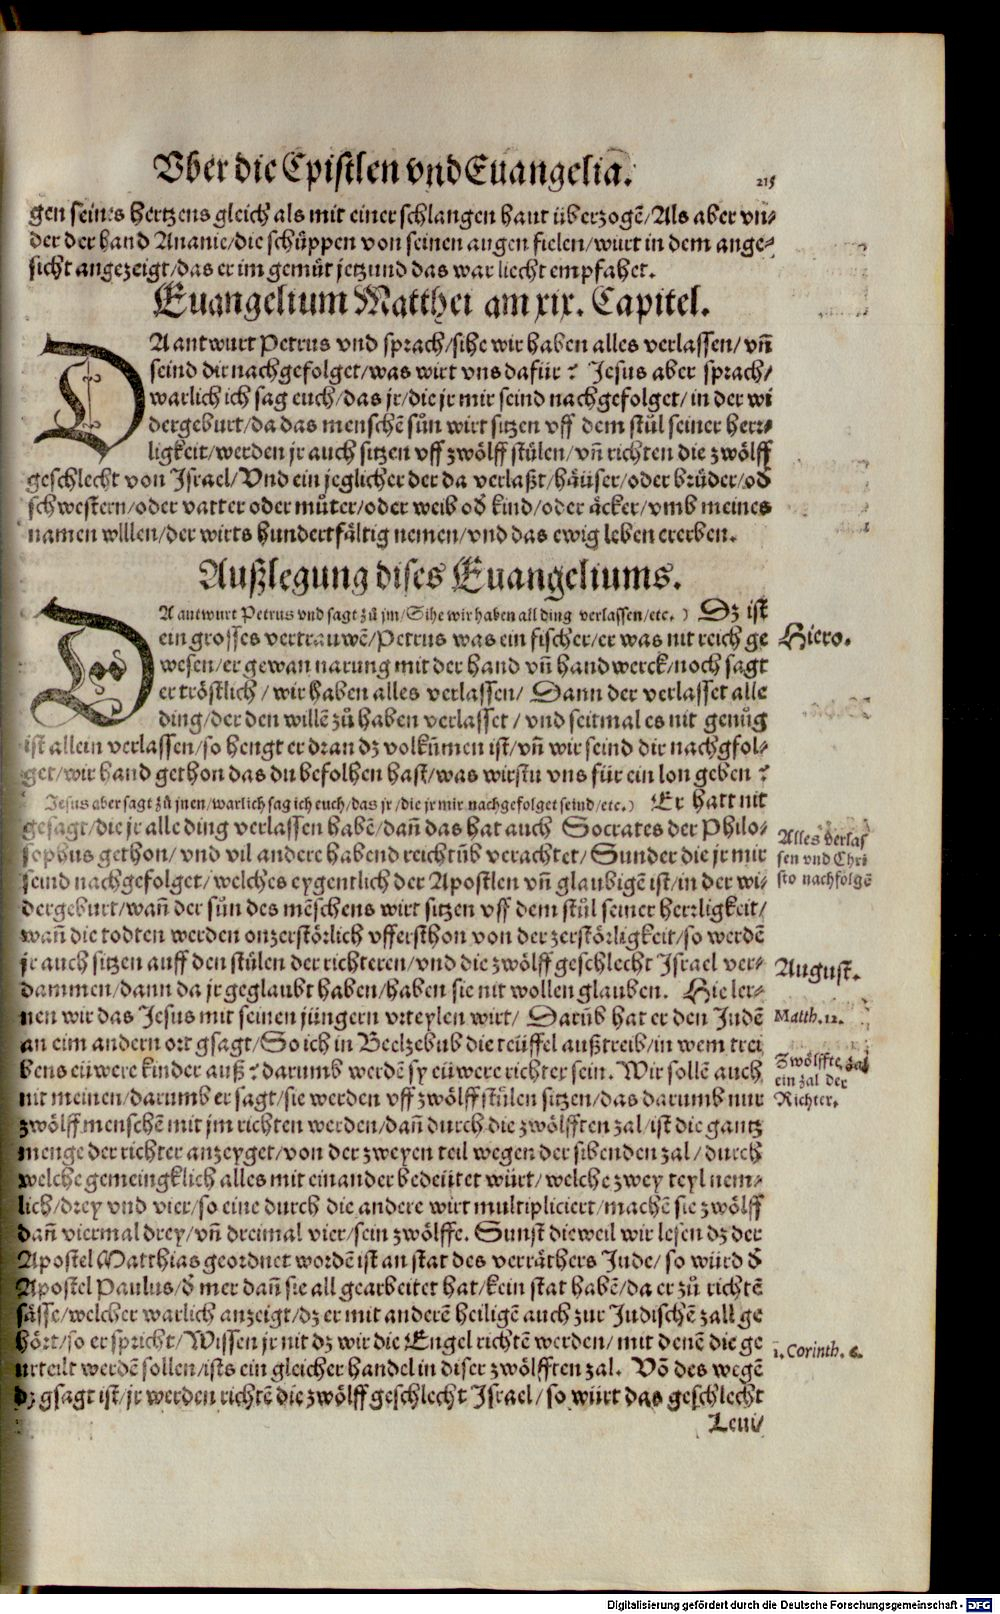 Vber die Epistlen vnd Euangelia.
215
gen seines hertzens gleich als mit einer schlangen haut überzogē/Als aber vn-
der der hand Ananie/die schüppen von seinen augen fielen/wurt in dem ange-
sicht angezeigt/das er im gemüt jetzund das war liecht empfahet.
Euangelium Matthei am xix. Capitel.
DA antwurt Petrus vnd sprach/sihe wir haben alles verlassen/vñ
seind dir nachgefolget/was wirt vns dafür? Jesus aber sprach/
warlich ich sag euch/das jr/die jr mir seind nachgefolget/in der wi
dergeburt/da das menschē sůn wirt sitzen vff dem stůl seiner herr-
ligkeit/werden jr auch sitzen vff zwölff stülen/vñ richten die zwölff
geschlecht von Israel/Vnd ein jeglicher der da verlaßt/häuser/oder brüder/od
schwestern/oder vatter oder můter/oder weib od kind/oder äcker/vmb meines
namen wlllen/der wirts hundertfältig nemen/vnd das ewig leben ererben.
Außlegung dises Euangeliums.
DA antwurt Petrus vnd sagt zů jm/Sihe wir haben all ding verlassen/etc.) Dz ist
ein grosses vertrauwē/Petrus was ein fischer/er was nit reich ge
wesen/er gewan narung mit der hand vñ handwerck/noch sagt
er tröstlich/wir haben alles verlassen/ Dann der verlasset alle
ding/der den willē zů haben verlasset/vnd seitmal es nit genůg
ist allein verlassen/so hengt er dran dz volkũmen ist/vñ wir seind dir nachgfol-
get/wir hand gethon das du befolhen hast/was wirstu vns für ein lon geben?
Jesus aber sagt zů jnen/warlich sag ich euch/das jr/die jr mir nachgefolget seind/etc.) Er hatt nit
gesagt/die jr alle ding verlassen habē/dañ das hat auch Socrates der Philo-
sophus gethon/vnd vil andere habend reichtũb verachtet/Sunder die jr mir
seind nachgefolget/welches eygentlich der Apostlen vñ glaubigē ist/in der wi-
dergeburt/wañ der sůn des mēschens wirt sitzen vff dem stůl seiner herrligkeit/
wañ die todten werden onzerstörlich vffersthon von der zerstörligkeit/so werdē
jr auch sitzen auff den stülen der richteren/vnd die zwölff geschlecht Israel ver-
dammen/dann da jr geglaubt haben/haben sie nit wollen glauben. Hie ler-
nen wir das Jesus mit seinen jüngern vrteylen wirt/ Darũb hat er den Judē
an eim andern ort gsagt/So ich in Beelzebub die teüffel außtreib/in wem trei
bens eüwere kinder auß? darumb werdē sy eüwere richter sein. Wir sollē auch
nit meinen/darumb er sagt/sie werden vff zwölff stülen sitzen/das darumb nur
zwölff menschē mit jm richten werden/dañ durch die zwölfften zal/ist die gantz
menge der richter anzeyget/von der zweyen teil wegen der sibenden zal/durch
welche gemeingklich alles mit einander bedeütet würt/welche zwey teyl nem-
lich/drey vnd vier/so eine durch die andere wirt multipliciert/machē sie zwölff
dañ viermal drey/vñ dreimal vier/sein zwölffe. Sunst dieweil wir lesen dz der
Apostel Matthias geordnet wordē ist an stat des verräthers Jude/so würd d
Apostel Paulus/d mer dañ sie all gearbeitet hat/kein stat habē/da er zů richtē
sässe/welcher warlich anzeigt/dz er mit anderē heiligē auch zur Judischē zall ge
hört/so er spricht/Wissen jr nit dz wir die Engel richtē werden/mit denē die ge
urteilt werdē sollen/ists ein gleicher handel in diser zwölfften zal. Vō des wegē
dz gsagt ist/jr werden richtē die zwölff geschlecht Israel/so würt das geschlecht
Leui/
Hiero.
Alles verlas
sen vnd Chri
sto nachfolgē
August.
Matth. 12.
Zwölffte zal
ein zal der
Richter.
1. Corinth. 6.
Digitalisierung gefördert durch die Deutsche Forschungsgemeinschaft - DFG